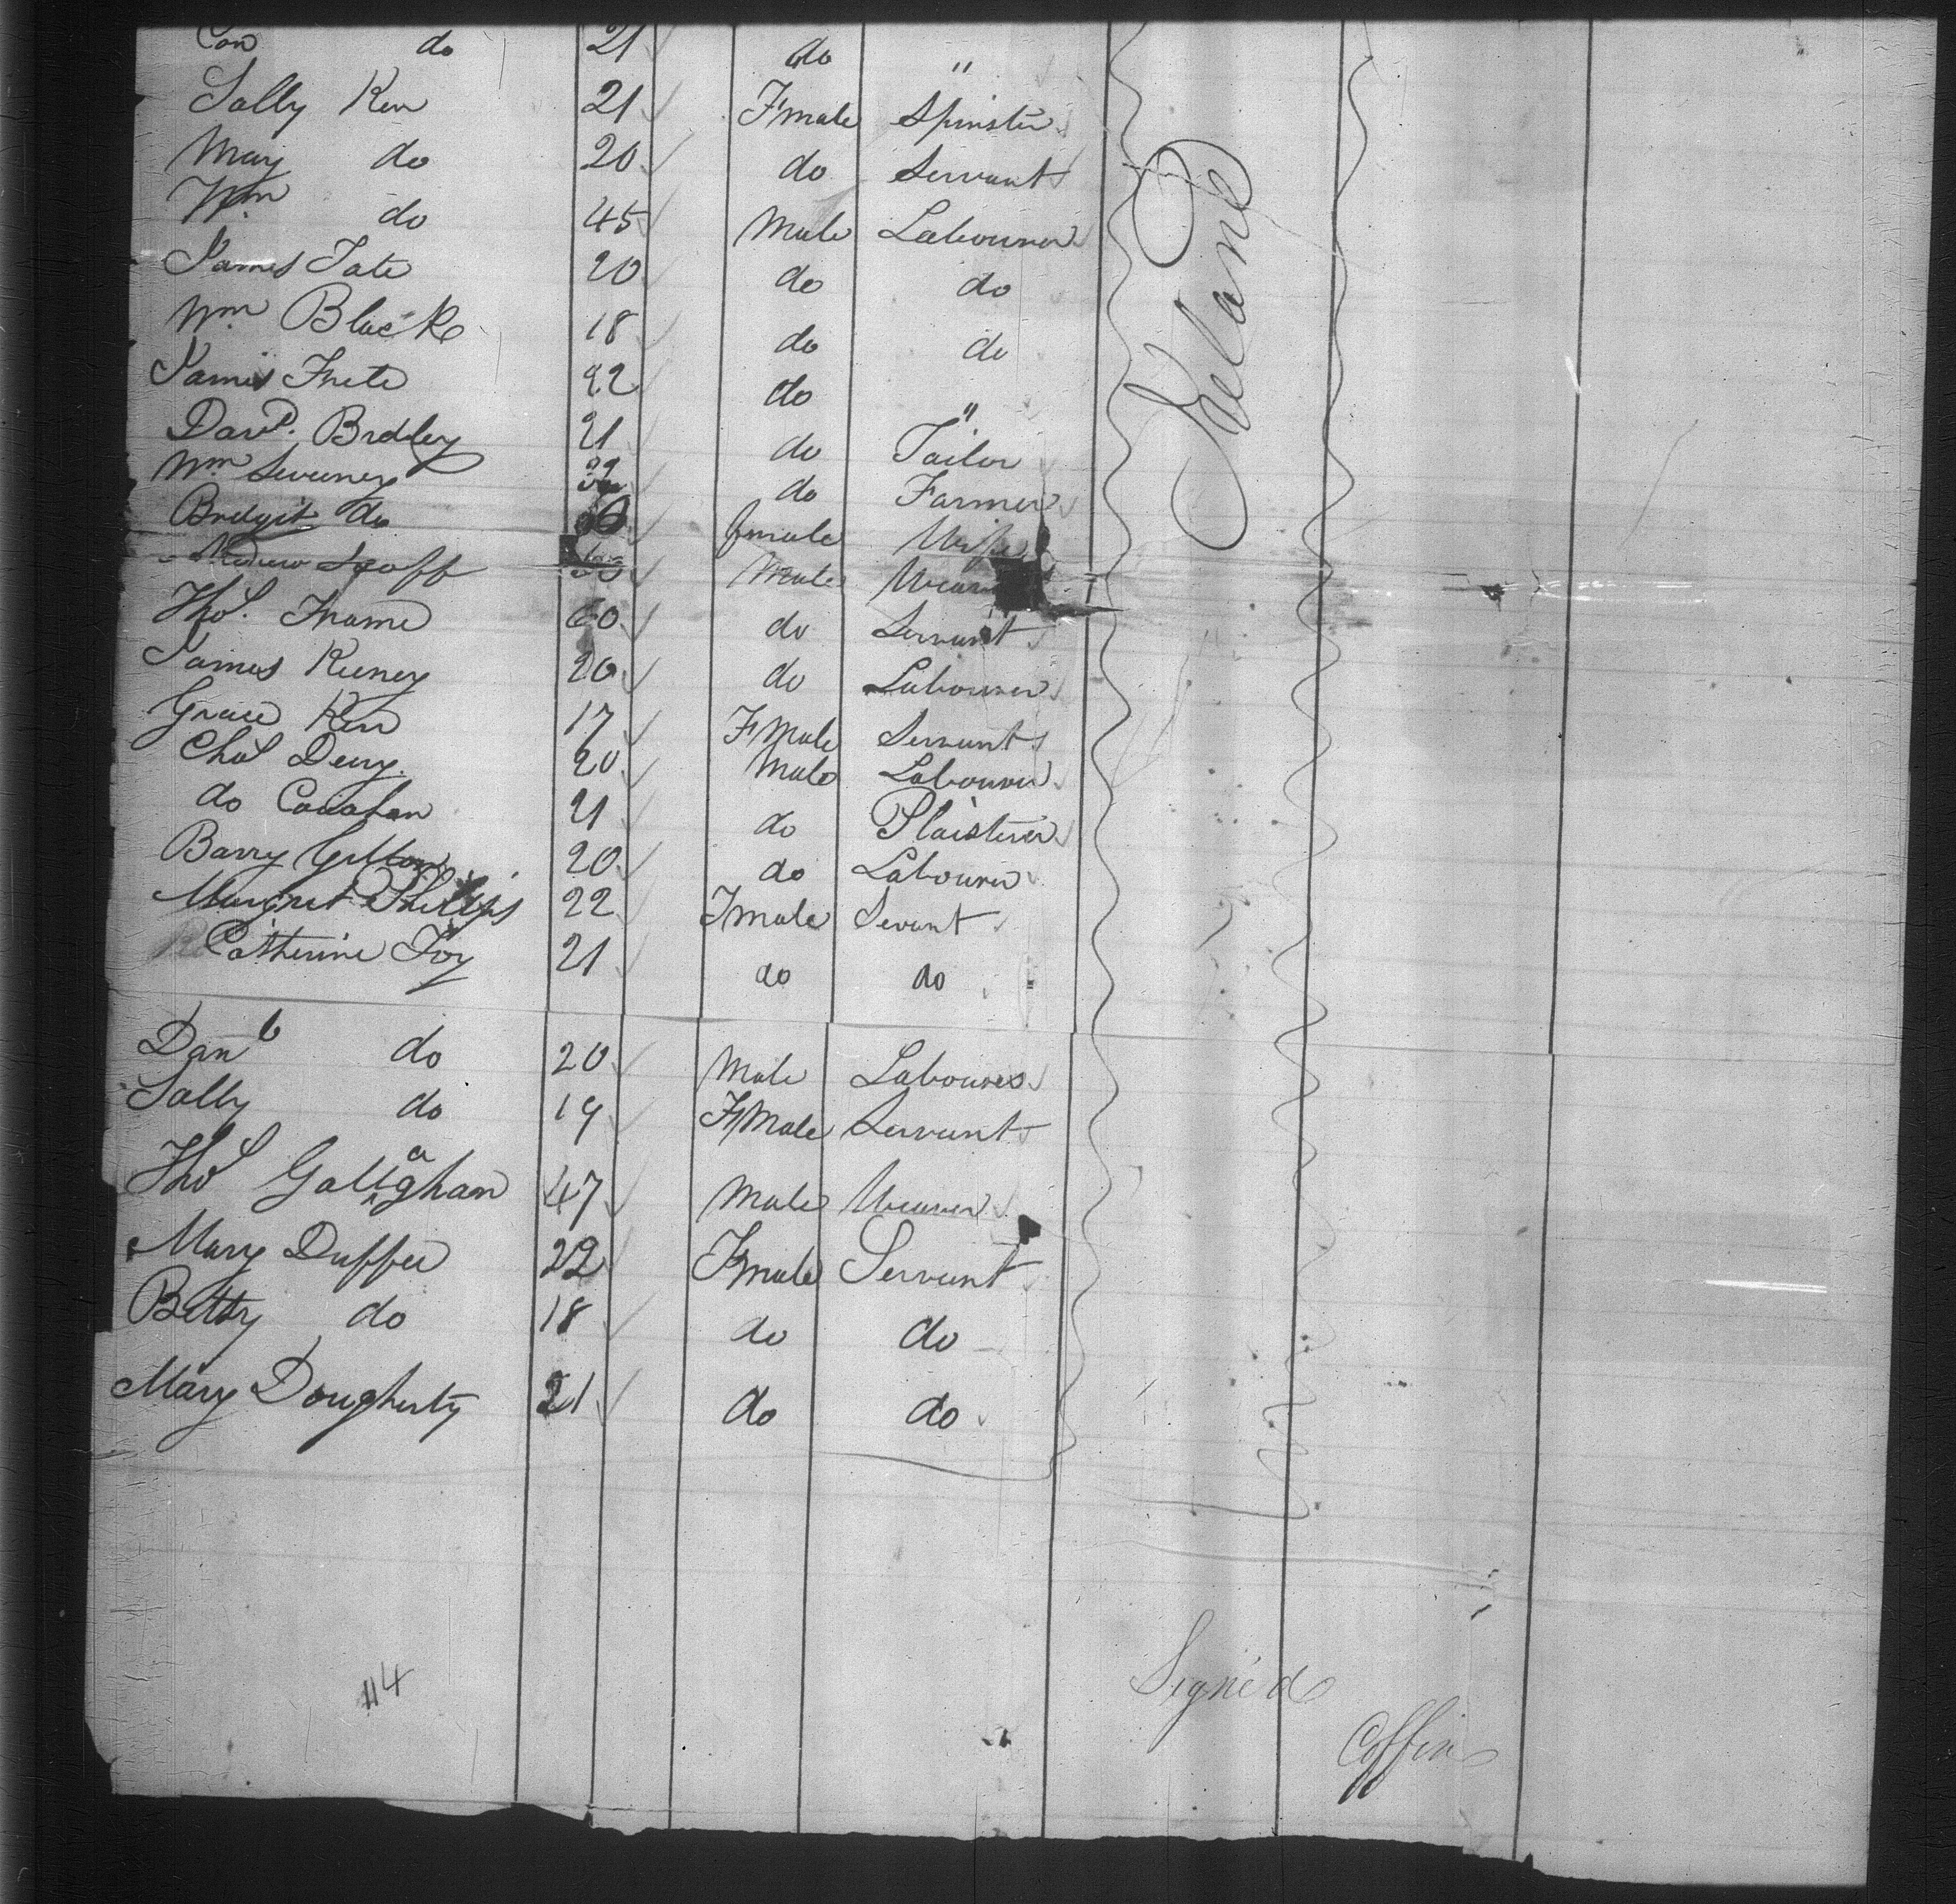 Con do 21 do "
Sally Kerr 21 Fmale Spinster
Mary do 20 do Servant
Wm do 45 Male Labourer
James Tate 20 do do
Wm Black 18 do do
James 22 do "
Davd. Bradley 21 do Tailor
Wm Sweeney do Farmer
Bridgit do female Wife
Andrew Male
Thos. Frame 60 do Servant
James Keeney 20 do Labourer
Grace Kerr 17 Fmale Servant
Chas Deery 20 Male Labourer
do 21 do Plaisterer
Barry 20 do Labourer
Margret Phillips 22 Fmale Sevant
Catherine Foy 21 do do
Danl do 20 Male Labourer
Sally do 19 FMale Servant
Thos Gallaghan 47 Male Weaver
Mary Duffee 22 Fmale Servant
Betty do 18 do do
Mary Dougherty 21 do do
Ireland
114
Signed
Coffin